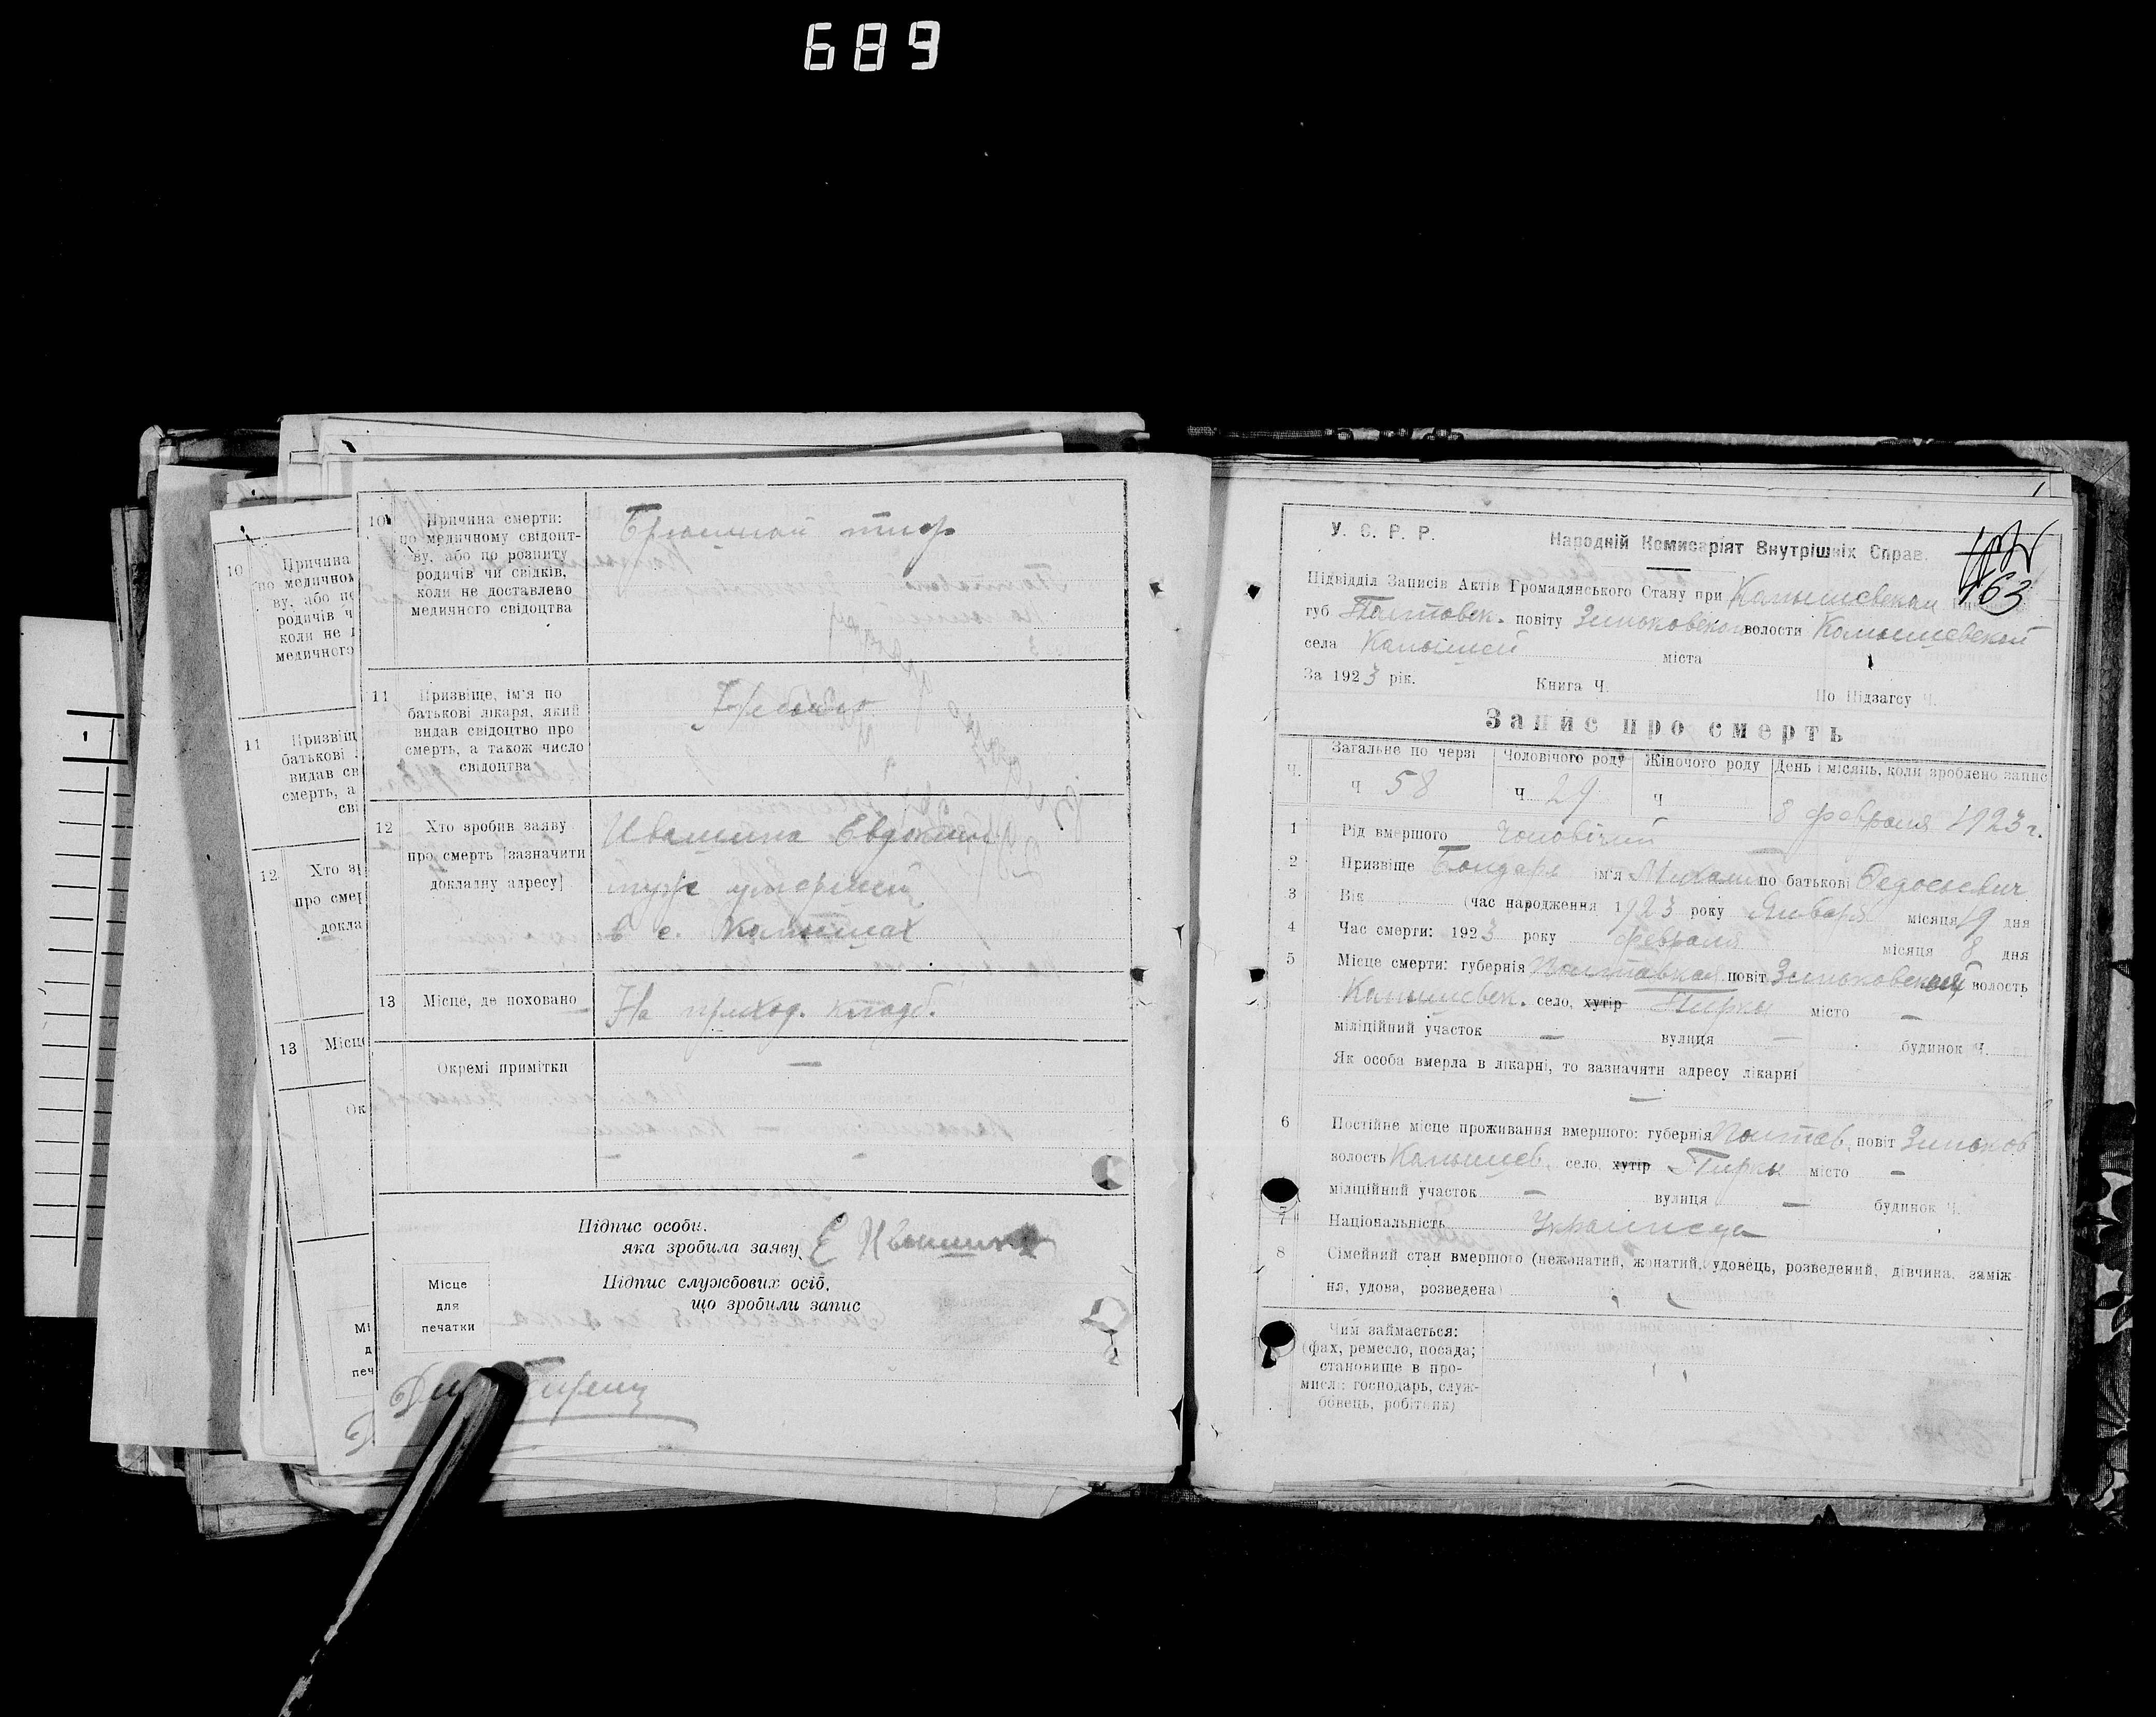 689
10 Причина
по медичном
ву, або по
родичів ч
коли не д
медичного
11 Призвіщ
батькові
видав св
смерть, а
сві
12 Хто зр
про смер
докла
13 Місце
Ок
Мі
д
печ
10 Причина смерти:
по медичному свідоцт-
ву, або по розпиту
родичів чи свідків,
коли не доставлено
медичного свідоцтва
Брюшной тиф
11 Призвіще, ім'я по
батькові лікаря, який
видав свідоцтво про
смерть, а також число
свідоцтва
12 Хто зробив заяву
про смерть [зазначити
докладну адресу]
Ивашина Евдоким
муж умершей
в с. Камышах
13 Місце, де поховано
На приход. кладб.
Окремі примітки
—
Підпис особи,
яка зробила заяву
Е Ивашина
Підпис службових осіб,
що зробили запис
Місце
для
печатки
У. С. Р. Р. Народній Комисаріят Внутрішніх Справ.
163
Підвідділ Записів Актів Громадянського Стану при Камышевском
губ Полтавск. повіту Зиньковского волости Камышевской
села Камышей міста
За 1923 рік. Книга Ч. По Підзагсу Ч.
Запис про смерть
Ч. Загальне по черзі Чоловічого роду Жіночого роду День і місяць, коли зроблено запис
Ч 58 Ч 29 Ч 8 февраля 1923 г.
1 Рід вмершого чоловічий
2 Призвіще Бондарь ім'я Михаил по батькові Федосьевич
3 Вік (час народження 1923 року Января місяця 19 дня
4 Час смерти: 1923 року февраля місяця 8 дня
5 Місце смерти: губернія Полтавская повіт Зиньковский волость
Камышевск. село, хутір Пирки місто —
міліційний участок — вулиця — будинок Ч.
Як особа вмерла в лікарні, то зазначити адресу лікарні
—
6 Постійне місце проживання вмершого: губернія Полтав. повіт Зиньков
волость Камышев. село, хутір Пирки місто —
міліційний участок — вулиця — будинок Ч.
7 Національність Украинец
8 Сімейний стан вмершого (нежонатий, жонатий, удовець, розведений, дівчина, заміж
ня, удова, розведена)
Чим займається:
(фах, ремесло, посада;
становище в про-
мислі: господарь, служ-
бовець, робітник)